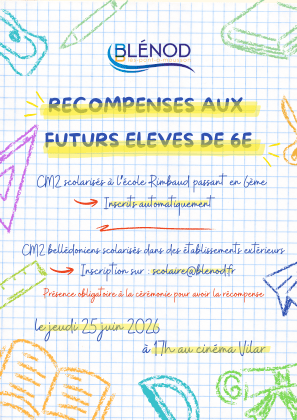 BLÉNOD
RECOMPENSES AUX
FUTURS ELEVES DE 6E
CM2 scolarisés à l'école Rimbaud passant en 6ème
Inscrits automatiquement
CM2 bellédoniens scolarisés dans des établissements extérieurs
Inscription sur : scolaire@blenod.fr
Présence obligatoire à la cérémonie pour avoir la récompense
le jeudi 25 juin 2026
à 17h au cinéma Vilar